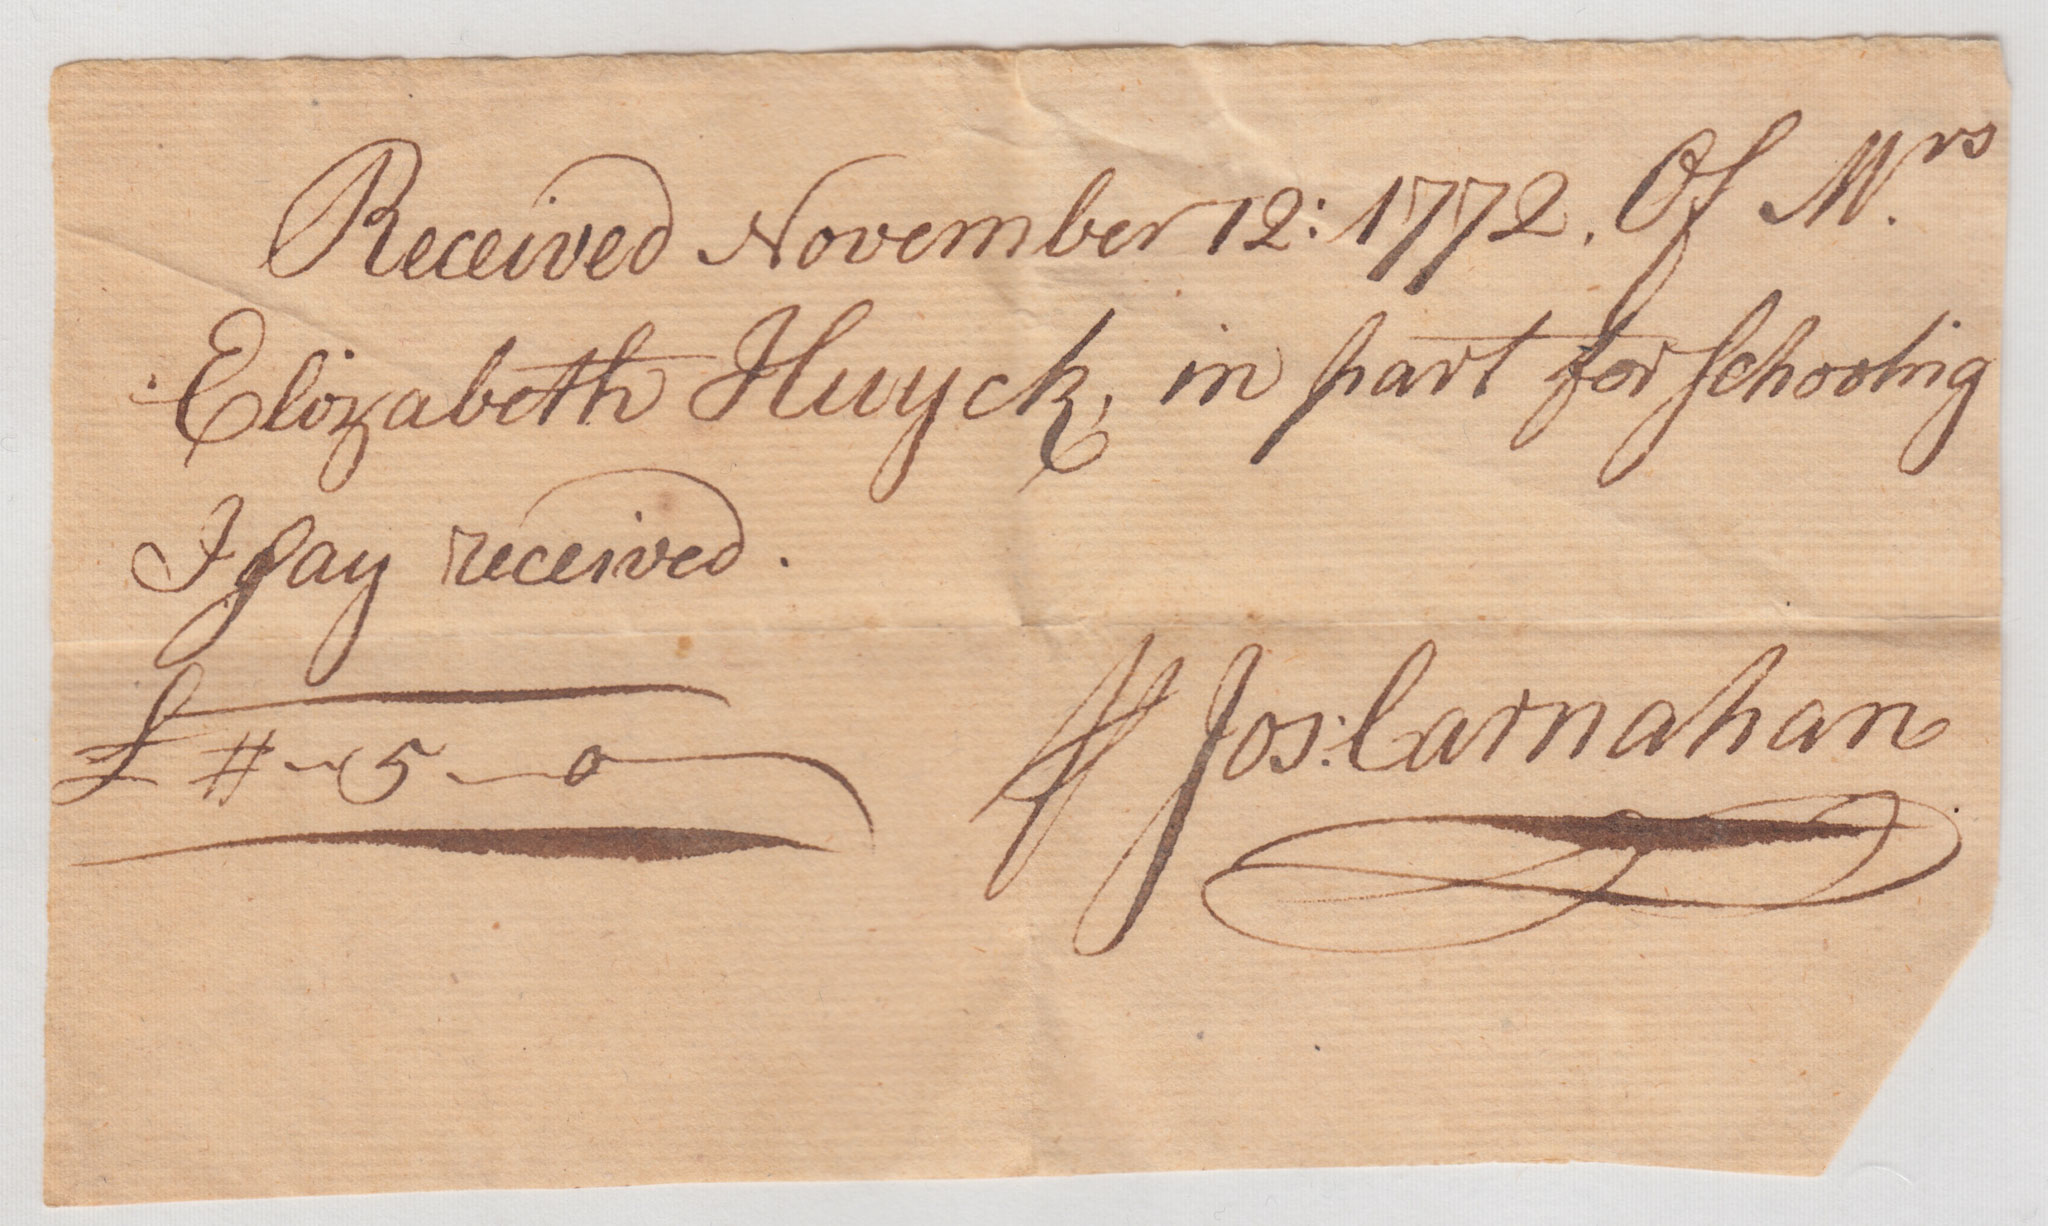 Received November 12: 1772. Of Mrs.
Elizabeth Huyck, in part for Schooling
I say received.
£ 〃 - 5 - 0
⅌ Jos: Carnahan